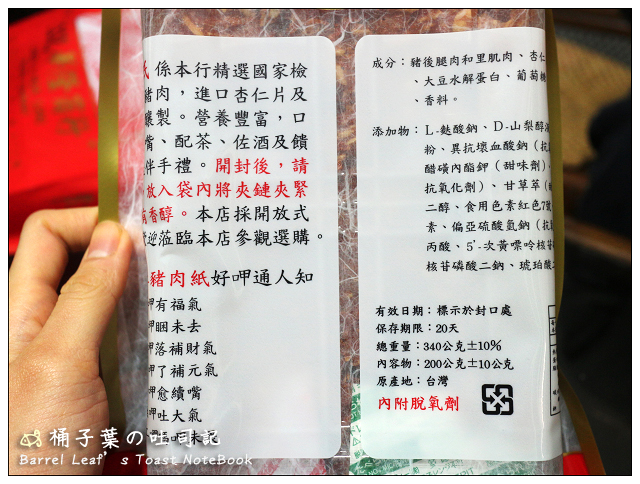 紙係本行精選國家檢
豬肉，進口杏仁片及
釀製。營養豐富，口
嘴、配茶、佐酒及饋
伴手禮。開封後，請
放入袋內將夾鏈夾緊
香醇。本店採開放式
迎蒞臨本店參觀選購。
豬肉紙好呷通人知
呷有福氣
呷睏未去
呷落補財氣
呷了補元氣
呷愈續嘴
呷吐大氣
成分：豬後腿肉和里肌肉、杏仁
、大豆水解蛋白、葡萄糖
、香料。
添加物：L-麩酸鈉、D-山梨醇
粉、異抗壞血酸鈉(抗
醋磺內酯鉀(甜味劑)、
抗氧化劑)、甘草萃
二醇、食用色素紅色7號
素、偏亞硫酸氫鈉(抗
丙酸、5'-次黃嘌呤核苷
核苷磷酸二鈉、琥珀酸
有效日期：標示於封口處
保存期限：20天
總重量：340公克±10%
內容物：200公克±10公克
原產地：台灣
內附脫氧劑
桶子葉の吐司記
Barrel Leaf's Toast NoteBook